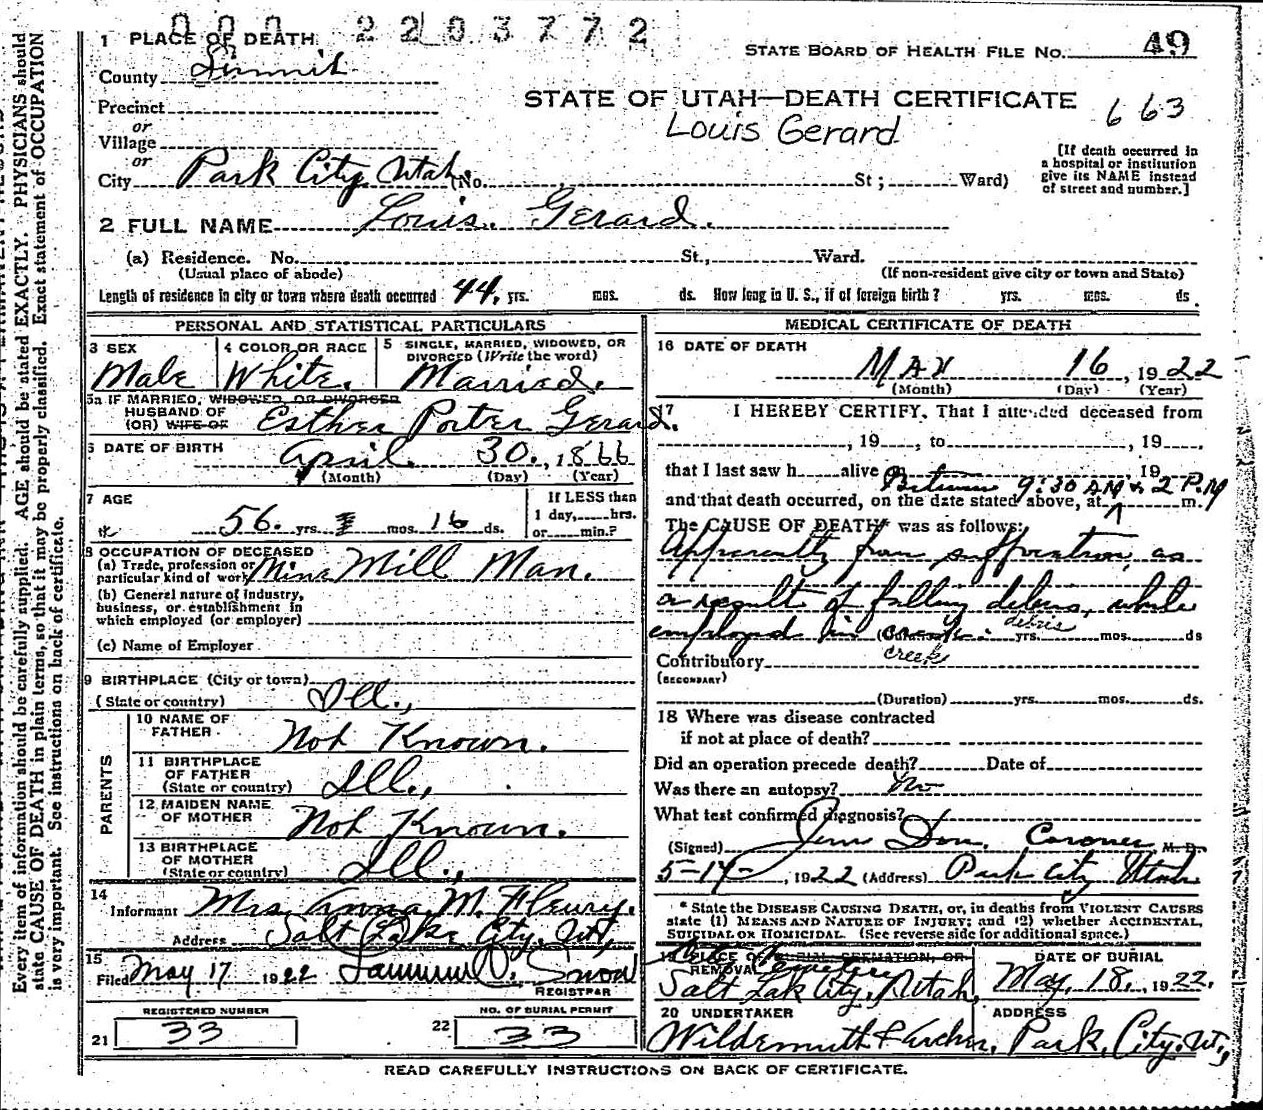 2203772
1 PLACE OF DEATH
STATE BOARD OF HEALTH FILE NO. 49
County Summit
STATE OF UTAH—DEATH CERTIFICATE
663
Precinct
Louis Gerard
or
Village
or
[If death occurred in
a hospital or institution
give its NAME instead
of street and number.]
City Park City, Utah. (No. St ; Ward)
2 FULL NAME Louis. Gerard.
(a) Residence. No. St., Ward.
(Usual place of abode) (If non-resident give city or town and State)
Length of residence in city or town where death occurred 44. yrs. mos. ds. How long in U. S., if of foreign birth? yrs. mos. ds.
PERSONAL AND STATISTICAL PARTICULARS
3 SEX
Male
4 COLOR OR RACE
White.
5 SINGLE, MARRIED, WIDOWED, OR
DIVORCED (Write the word)
Married.
5a IF MARRIED, WIDOWED, OR DIVORCED
HUSBAND OF
(OR) WIFE OF Esther Porter Gerard.
6 DATE OF BIRTH
April. 30., 1866
(Month) (Day) (Year)
7 AGE
56. yrs. mos. 16 ds.
If LESS then
1 day, hrs.
or min.?
8 OCCUPATION OF DECEASED
(a) Trade, profession or
particular kind of work Mina Mill Man.
(b) General nature of industry,
business, or establishment in
which employed (or employer)
(c) Name of Employer
9 BIRTHPLACE (City or town)
(State or country) Ill.,
PARENTS
10 NAME OF
FATHER Not Known.
11 BIRTHPLACE
OF FATHER
(State or country) Ill.,
12 MAIDEN NAME
OF MOTHER Not Known.
13 BIRTHPLACE
OF MOTHER
(State or country) Ill.,
14
Informant Mrs. Anna M. Fleury.
Address Salt Lake City, Ut,
15
Filed May 17 1922 Snow
REGISTRAR
REGISTERED NUMBER
21 33
NO. OF BURIAL PERMIT
22 33
MEDICAL CERTIFICATE OF DEATH
16 DATE OF DEATH
MAY 16, 1922
(Month) (Day) (Year)
17 I HEREBY CERTIFY, That I attended deceased from
, 19 , to , 19
that I last saw h alive , 19
Between 9:30 AM & 2 P.M
and that death occurred, on the date stated above, at m.
The CAUSE OF DEATH* was as follows:
Apparently from suffocation, as
a result of falling debris, while
debris
employed in creek. (Duration) yrs. mos. ds
creek
Contributory
(SECONDARY)
(Duration) yrs. mos. ds.
18 Where was disease contracted
if not at place of death?
Did an operation precede death? Date of
Was there an autopsy? No
What test confirmed diagnosis?
(Signed) Coroner, M. D.
5-17-, 1922 (Address) Park City Utah
* State the DISEASE CAUSING DEATH, or, in deaths from VIOLENT CAUSES
state (1) MEANS AND NATURE OF INJURY; and (2) whether ACCIDENTAL,
SUICIDAL OR HOMICIDAL. (See reverse side for additional space.)
19 PLACE OF BURIAL, CREMATION, OR
REMOVAL Cemetery
Salt Lake City, Utah,
DATE OF BURIAL
May. 18., 1922.
20 UNDERTAKER
Wildemuth & Archer.
ADDRESS
Park. City. Ut,
READ CAREFULLY INSTRUCTIONS ON BACK OF CERTIFICATE.
Every item of information should be carefully supplied. AGE should be stated EXACTLY. PHYSICIANS should
state CAUSE OF DEATH in plain terms, so that it may be properly classified. Exact statement of OCCUPATION
is very important. See instructions on back of certificate.